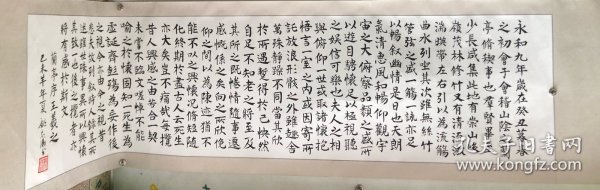 永和九年歲在癸丑暮春
之初會于會稽山陰之蘭
亭脩禊事也羣賢畢至
少長咸集此地有崇山峻
嶺茂林修竹又有清流激
湍暎帶左右引以為流觴
曲水列坐其次雖無絲竹
管弦之盛一觴一詠亦足
以暢敘幽情是日也天朗
氣清惠風和暢仰觀宇
宙之大俯察品類之盛所
以遊目騁懷足以極視聽
之娛信可樂也夫人之相
與俯仰一世或取諸懷抱
悟言一室之內或因寄所
託放浪形骸之外雖趣舍
萬殊靜躁不同當其欣
於所遇暫得於己怏然
自足不知老之將至及
其所之既惓情隨事遷
感慨係之矣向之所欣俛
仰之間以為陳迹猶不
能不以之興懷況脩短隨
化終期於盡古人云死生
亦大矣豈不痛哉每攬
昔人興感之由若合一契
未嘗不臨文嗟悼不能
喻之於懷固知一死生為
虛誕齊彭殤為妄作後
之視今亦由今之視昔
悲夫故列敘時人錄其所
述雖世殊事異所以興懷
其致一也後之攬者亦
將有感於斯文
蘭亭序王羲之
孔夫子旧书网
KONGFZ.COM